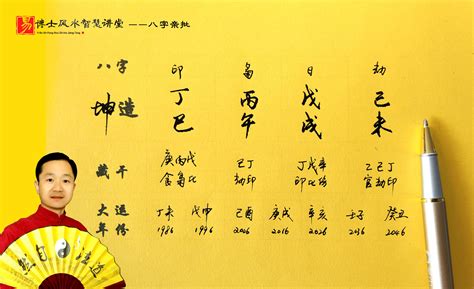 易 博士风水智慧讲堂 ——八字亲批
八字 印 枭 日 劫
坤造 丁 丙 戊 己
巳 午 戌 未
藏干 庚丙戊 己丁 丁戊辛 乙己丁
食枭比 劫印 印比伤 官劫印
大运 丁未 戊申 己酉 庚戌 辛亥 壬子 癸丑
年份 1986 1996 2006 2016 2026 2036 2046
然自法道